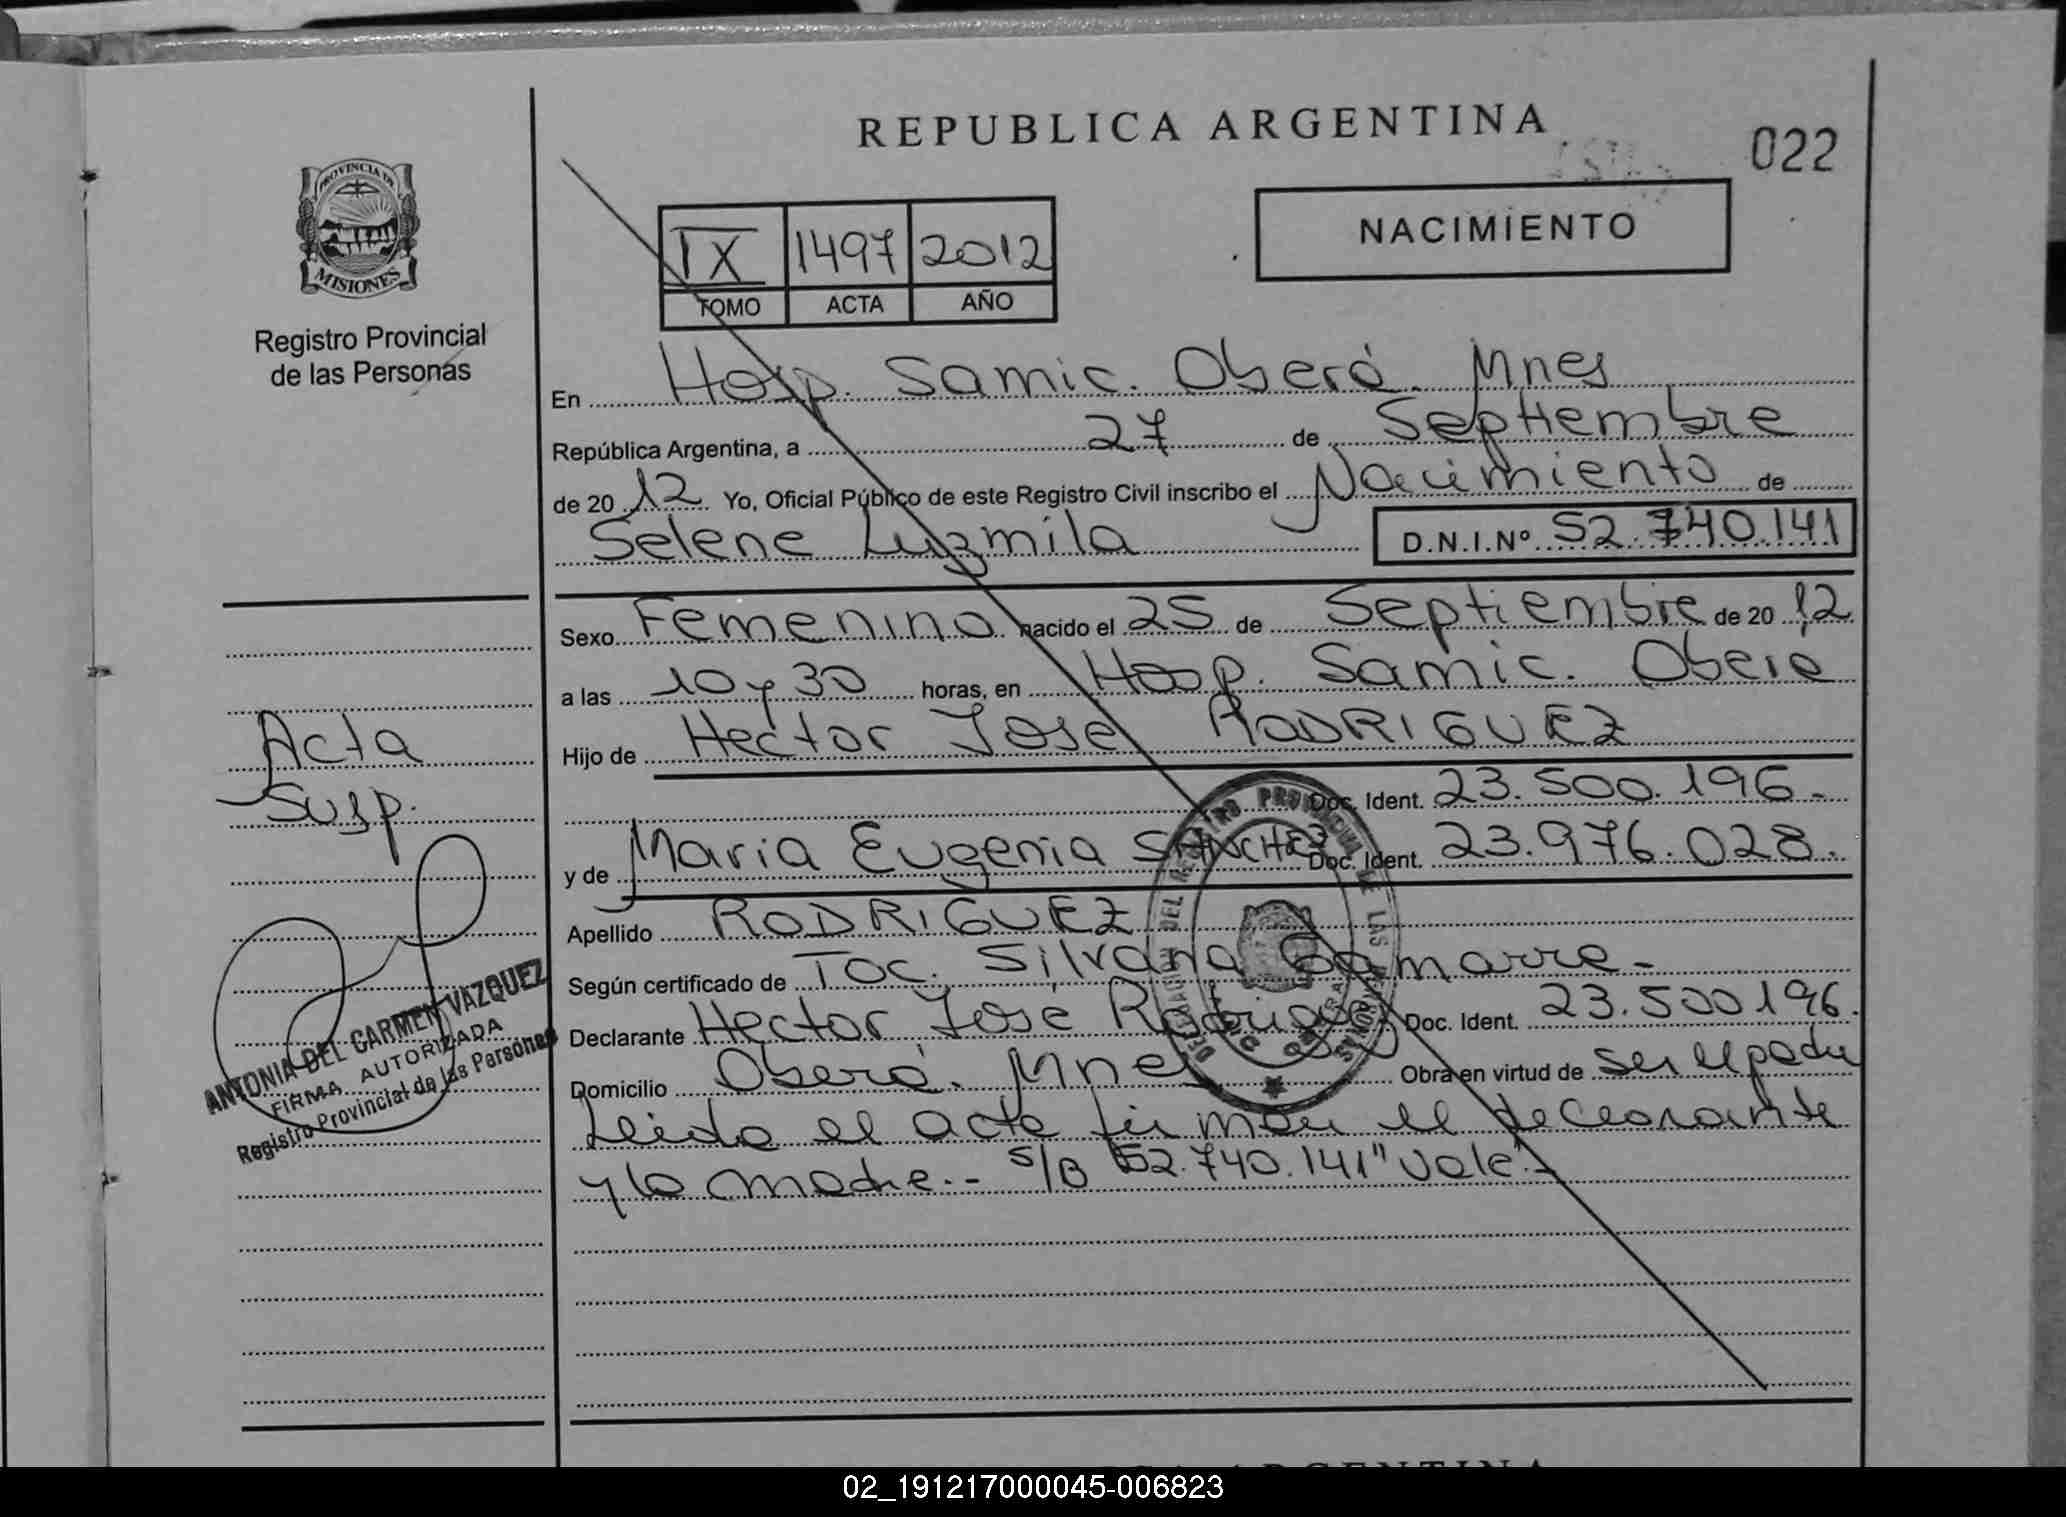 REPUBLICA ARGENTINA
022
PROVINCIA DE
MISIONES
Registro Provincial
de las Personas
IX 1497 2012
TOMO ACTA AÑO
NACIMIENTO
En Hosp. Samic. Oberá. Mnes
República Argentina, a 27 de Septiembre
de 20 12 Yo, Oficial Público de este Registro Civil inscribo el Nacimiento de
Selene Luzmila D.N.I.Nº 52.740.141
Sexo Femenino nacido el 25 de Septiembre de 20 12
a las 10 y 30 horas, en Hosp. Samic. Obera
Hijo de Hector Jose RODRIGUEZ
Doc. Ident. 23.500.196.-
y de Maria Eugenia SANCHEZ Doc. Ident. 23.976.028.
Apellido RODRIGUEZ
Según certificado de Toc. Silvana Gamarra.-
Declarante Hector José Rodriguez Doc. Ident. 23.500196.
Domicilio Oberá. Mnes Obra en virtud de ser el padre
Leida el acta firman el declarante
y la madre.- S/B "52.740.141" Vale.-
Acta
Susp.
ANTONIA DEL CARMEN VAZQUEZ
FIRMA AUTORIZADA
Registro Provincial de las Personas
DEL REGISTRO PROVINCIAL DE LAS PERSONAS
02_191217000045-006823